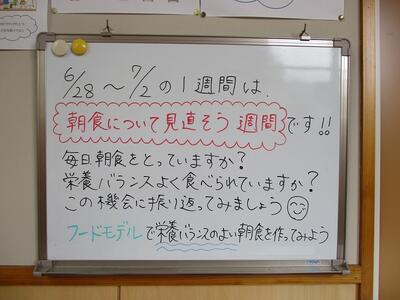 6/28〜7/2の1週間は、
朝食について見直そう週間です!!
毎日朝食をとっていますか?
栄養バランスよく食べられていますか?
この機会に振り返ってみましょう
フードモデルで栄養バランスのよい朝食を作ってみよう